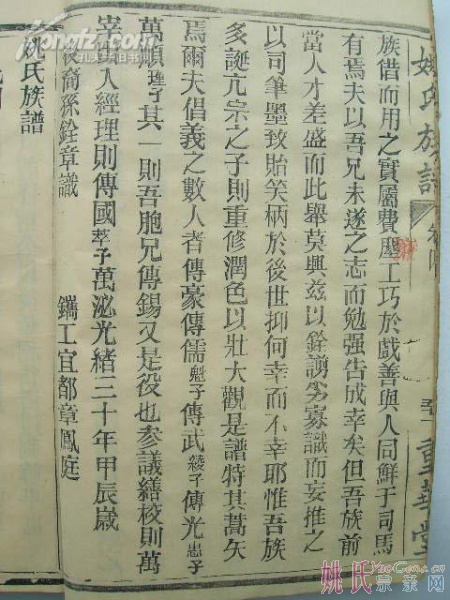 姚氏族譜
重華堂
族借而用之實屬費壓工巧於戲善與人同鮮于司馬
有焉夫以吾兄未遂之志而勉强告成幸矣但吾族前
當人才差盛而此舉莫興兹以銓謭劣寡識而妄推之
以司筆墨致貽笑柄於後世抑何幸而不幸耶惟吾族
多誕亢宗之子則重修潤色以壯大觀是譜特其蒿矢
焉爾夫倡義之數人者傳豪傳儒魁子傳武綾子傳光忠子
萬順理子其一則吾胞兄傳錫又是役也參議繕校則萬
宰其人經理則傳國萃子萬泌光緒三十年甲辰歲
裔孫銓章識 鐫工宜都章鳳庭
姚氏族譜
姚氏宗亲网